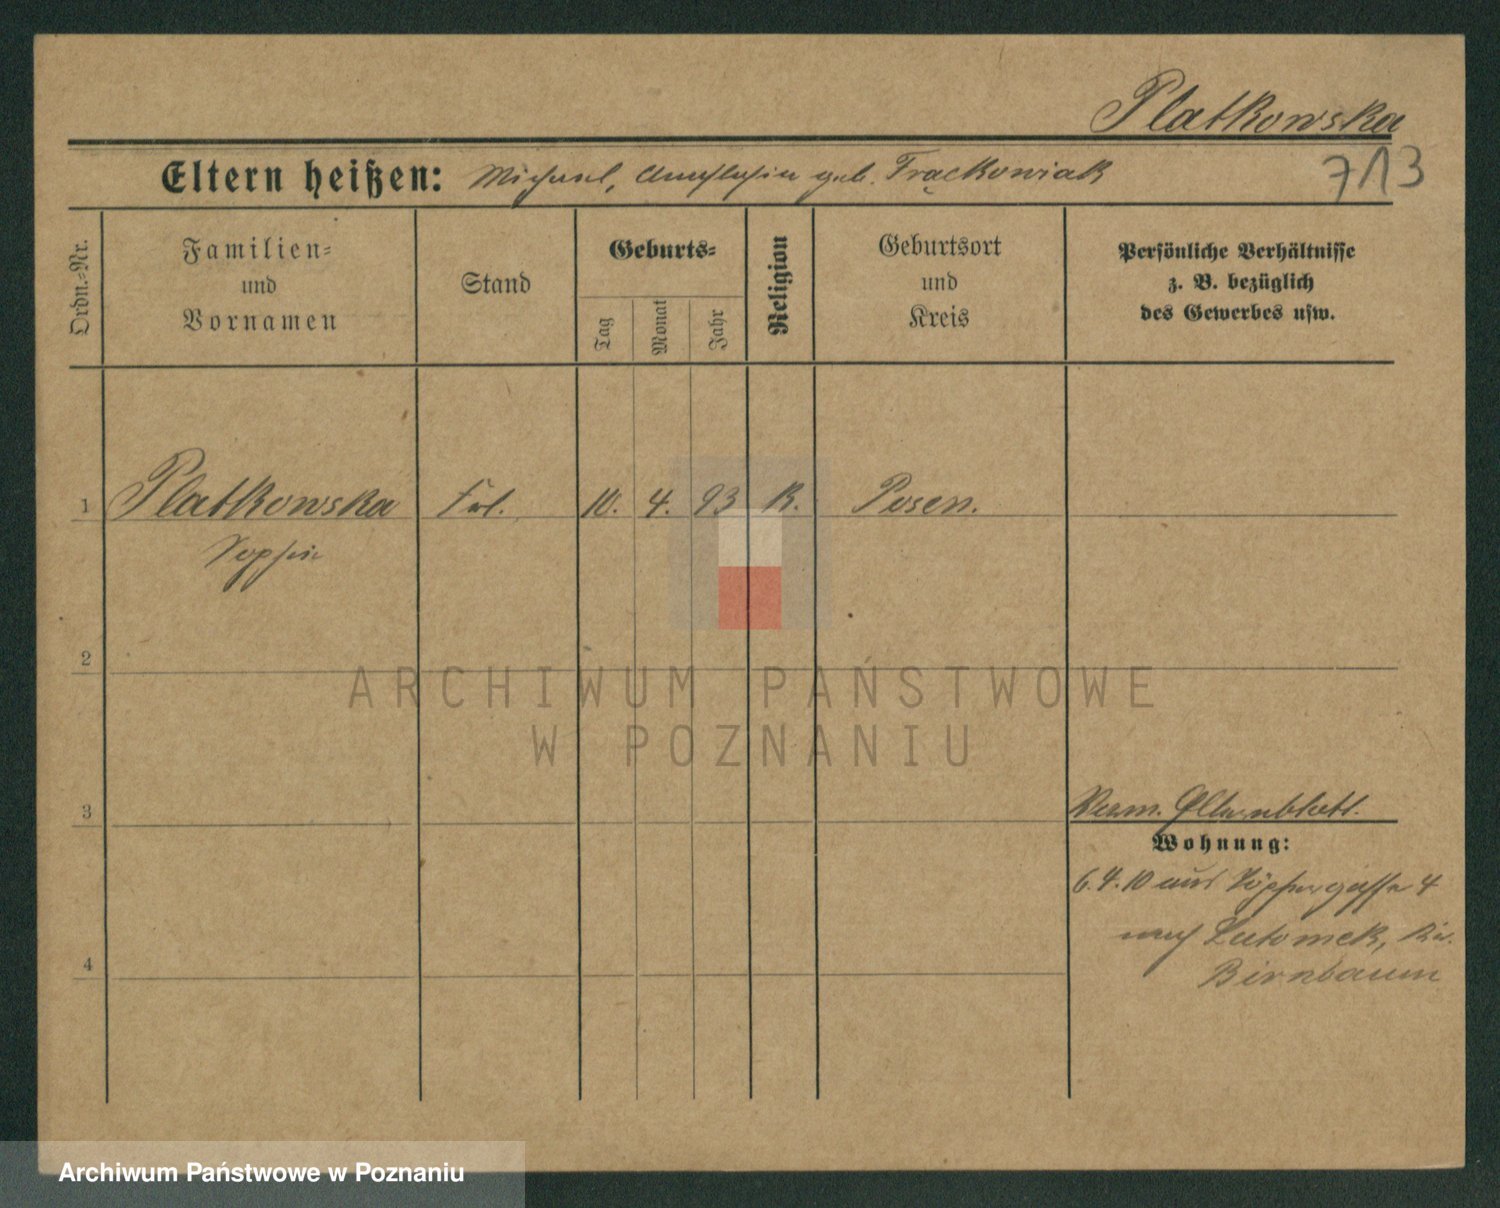 Platkowska
713
Eltern heißen: Michael, geb. Frąckowiak
Ordn.=Nr.
Familien=
und
Vornamen
Stand
Geburts=
Tag
Monat
Jahr
Religion
Geburtsort
und
Kreis
Persönliche Verhältnisse
z. B. bezüglich
des Gewerbes usw.
1 Platkowska Frl. 10. 4. 93 K. Posen.
Sophie
2
ARCHIWUM PAŃSTWOWE
W POZNANIU
3
Verm. Elternblatt.
Wohnung:
6.4.10 aus Töpfergasse 4
nach Lutomek, Kr.
4
Birnbaum
Archiwum Państwowe w Poznaniu